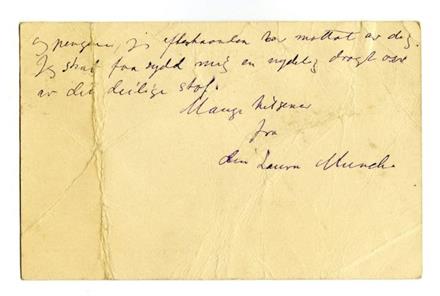 og pengene, jeg efterhaanden har mottat av dig.
Jeg skal faa sydd mig en nydelig dragt
av det deilige stof.
Mange hilsener
fra
din Laura Munch